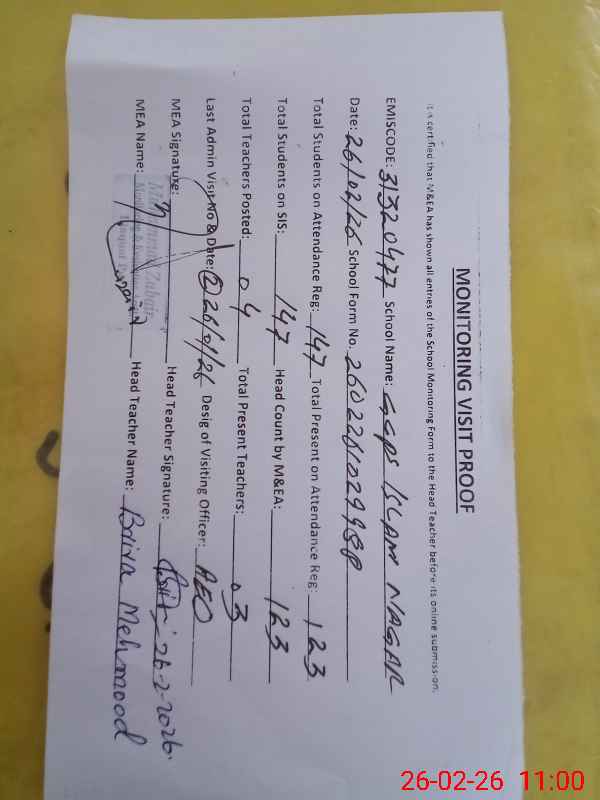 MONITORING VISIT PROOF
It is certified that M&EA has shown all entries of the School Monitoring Form to the Head Teacher before its online submission.
EMISCODE: 31320477 School Name: GGPS ISLAM NAGAR
Date: 26/02/26 School Form No.
Total Students on Attendance Reg: 147 Total Present on Attendance Reg: 123
Total Students on SIS: 147 Head Count by M&EA: 123
Total Teachers Posted: 04 Total Present Teachers: 03
Last Admin Visit No & Date: 2 26/01/26 Desig of Visiting Officer: AEO
MEA Signature: Head Teacher Signature: 26-2-2026.
MEA Name: Head Teacher Name: Mehmood
Muhammad Zubair
26-02-26 11:00